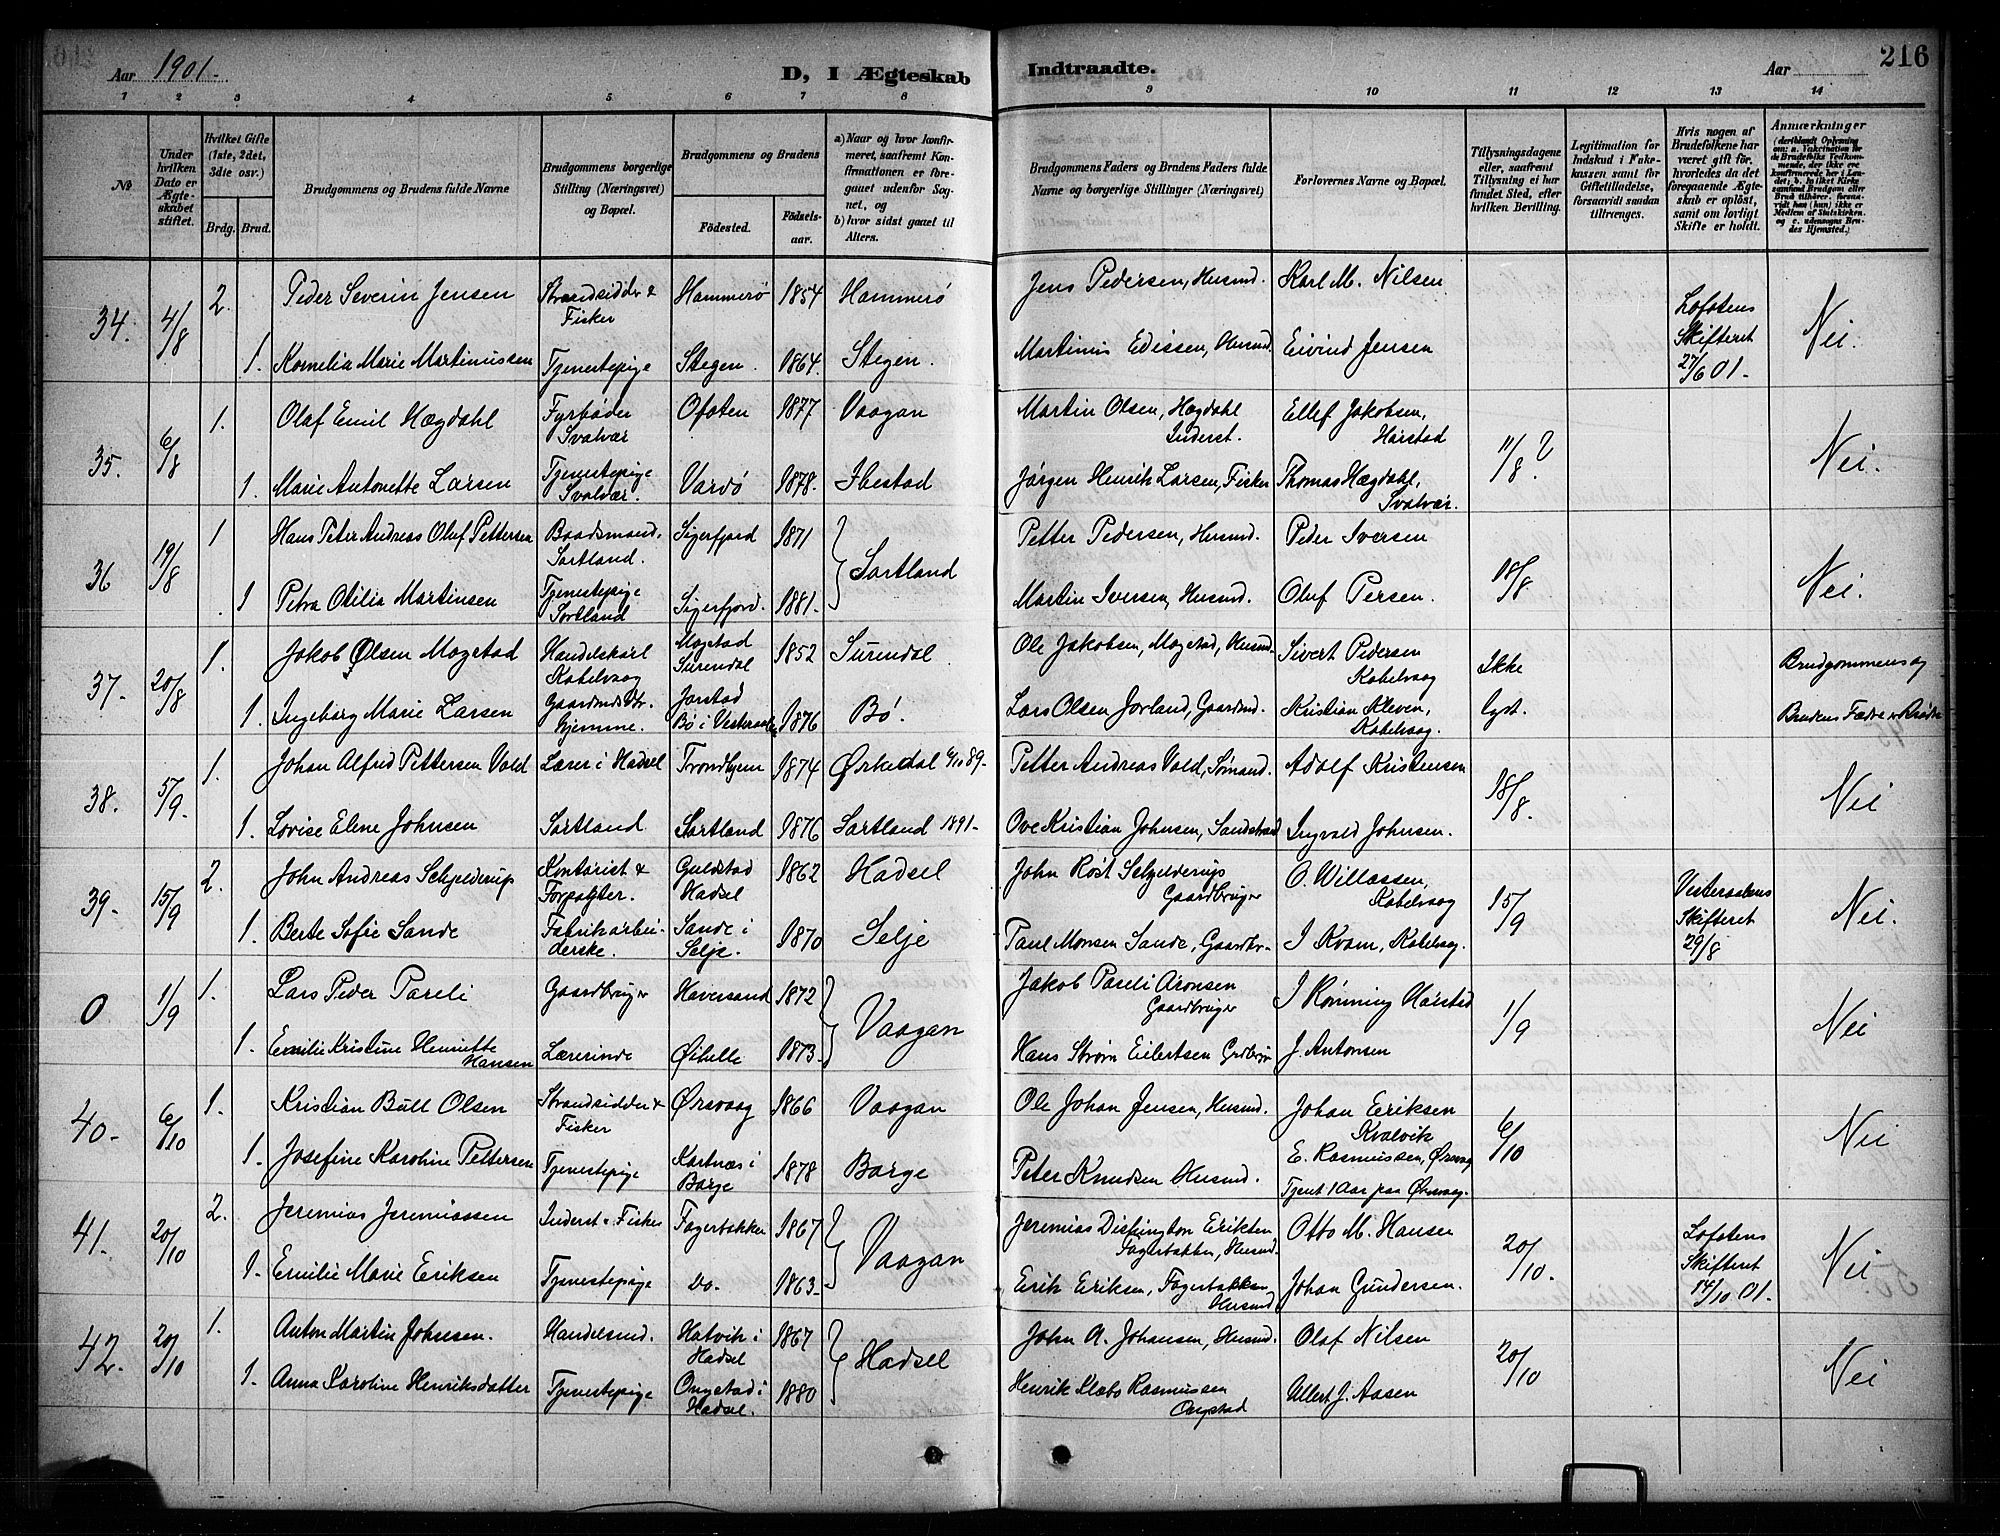 Aar 1901.
D, I Ægteskab
Indtraadte.
Aar
216
1 2 3 4 5 6 7 8 9 10 11 12 13 14
№
Under hvilken Dato er Ægteskabet stiftet.
Hvilket Gifte (1ste, 2det, 3die osv.)
Brdg. Brud.
Brudgommens og Brudens fulde Navne
Brudgommens borgerlige Stilling (Næringsvei) og Bopæl.
Brudgommens og Brudens
Fødested.
Fødselsaar.
a) Naar og hvor konfirmeret, saafremt Konfirmationen er foregaaet udenfor Sognet, og
b) hvor sidst gaaet til Alters.
Brudgommens Faders og Brudens Faders fulde Navne og borgerlige Stillinger (Næringsvei)
Forlovernes Navne og Bopæl.
Tillysningsdagene eller, saafremt Tillysning ei har fundet Sted, efter hvilken Bevilling.
Legitimation for Indskud i Fakkassen samt for Giftetilladelse, forsaavidt saadan tiltrænges.
Hvis nogen af Brudefolkene har været gift før, hvorledes da det foregaaende Ægteskab er opløst, samt om lovligt Skifte er holdt.
Anmærkninger
34. 4/8 2. Peder Severin Jensen Strandsidder & Fisker Hammerø 1854 Hammerø Jens Pedersen, Husmd. Karl M. Nilsen Lofotens Skifteret 27/6 01. Nei.
1. Kornelia Marie Martinussen Tjenestepige Stegen. 1864. Stegen. Martinus Edissen, Husmd. Eivind Jensen
35. 6/8 1. Olaf Emil Hægdahl Fyrbøder Svolvær Ofoten 1877 Vaagan Martin Olsen, Hægdahl Inderst. Ellef Jakobsen, Harstad 11/8 ? Nei.
1. Marie Antonette Larsen Tjenestepige Svolvær. Vardø 1878. Ibestad Jørgen Henrik Larsen, Fisker Thomas Hægdahl, Svolvær.
36 19/8 1 Hans Peter Andreas Oluf Pettersen Baadsmand, Sortland. Sigerfjord 1871 Sortland Petter Pedersen, Husmd. Peder Iversen 18/8 Nei.
1 Petra Otilia Martinsen Tjenestepige Sortland Sigerfjord. 1881. Martin Iversen, Husmd. Oluf Persen.
37. 20/8 1. Jakob Olsen Mogstad Handelskarl Kabelvaag Mogstad Surendal 1852 Surendal Ole Jakobsen, Mogstad, Husmd. Sivert Pedersen Kabelvaag Ikke lyst. Brudgommens og Brudens Fædre er Brødre
1. Ingeborg Marie Larsen Gaardmds Dtr. Hjemme. Jorstad Bø i Vesteraalen 1876 Bø. Lars Olsen Jorland, Gaardmd. Kristian Kleven, Kabelvaag.
38. 5/9 1. Johan Alfred Pettersen Vold Lærer i Hadsel Trondhjem 1874 Ørkedal 6/10 89. Petter Andreas Vold, Sømand. Adolf Kristensen 18/8. Nei
1. Lovise Elene Johnsen Sortland Sortland 1876 Sortland 1891. Ove Kristian Johnsen, Sandstrand Ingvald Johnsen.
39. 15/9 2. John Andreas Schjelderup Kontorist & Forpagter. Guldstad Hadsel 1862 Hadsel John Røst Schjelderup Gaardbruger O. Willassen, Kabelvaag 15/9 Vesteraalens Skifteret 29/8 Nei.
1. Berte Sofie Sande Fabrikarbeiderske. Sande i Selje. 1870 Selje Paul Monsen Sande, Gaardbr. I Kvam, Kabelvaag.
0 1/9 1. Lars Peder Pareli Gaardbruger Haversand 1872 Vaagan Jakob Pareli Aronsen Gaardbruger I Rønning Harstad 1/9 Nei
1. Emilie Kristine Henriette Hansen Lærerinde Øihelle 1873. Hans Strøm Eilertsen Grdbrgr J. Antonsen
40. 6/10 1. Kristian Bull Olsen Strandsidder & Fisker Ørsvaag 1866 Vaagan Ole Johan Jensen, Husmd. Johan Eriksen Kvalvik 6/10 Nei
1. Josefine Karoline Pettersen Tjenestepige Kartnæs i Borge 1878 Borge Peter Knudsen Husmd. E. Rasmussen, Ørsvaag Tjent 1 Aar paa Ørsvaag.
41. 20/10 2. Jeremias Jeremiassen Inderst & Fisker Fagerbakken 1867 Vaagan Jeremias Disfington Eriksen Fagerbakken, Husmd. Otto M. Hansen 20/10. Lofotens Skifteret 14/10 01. Nei
1. Emilie Marie Eriksen Tjenestepige Do. 1863. Erik Eriksen, Fagerbakken Husmd Johan Gundersen.
42. 20/10 1. Anton Martin Johnsen. Handelsmd. Hatvik i Hadsel 1867 Hadsel John A. Johansen, Husmd. Olaf Nilsen 20/10 Nei
1. Anna Karoline Henriksdatter Tjenestepige Ongstad i Hadsel. 1880 Henrik Klæbo Rasmussen Ongstad Ullert J. Aasen